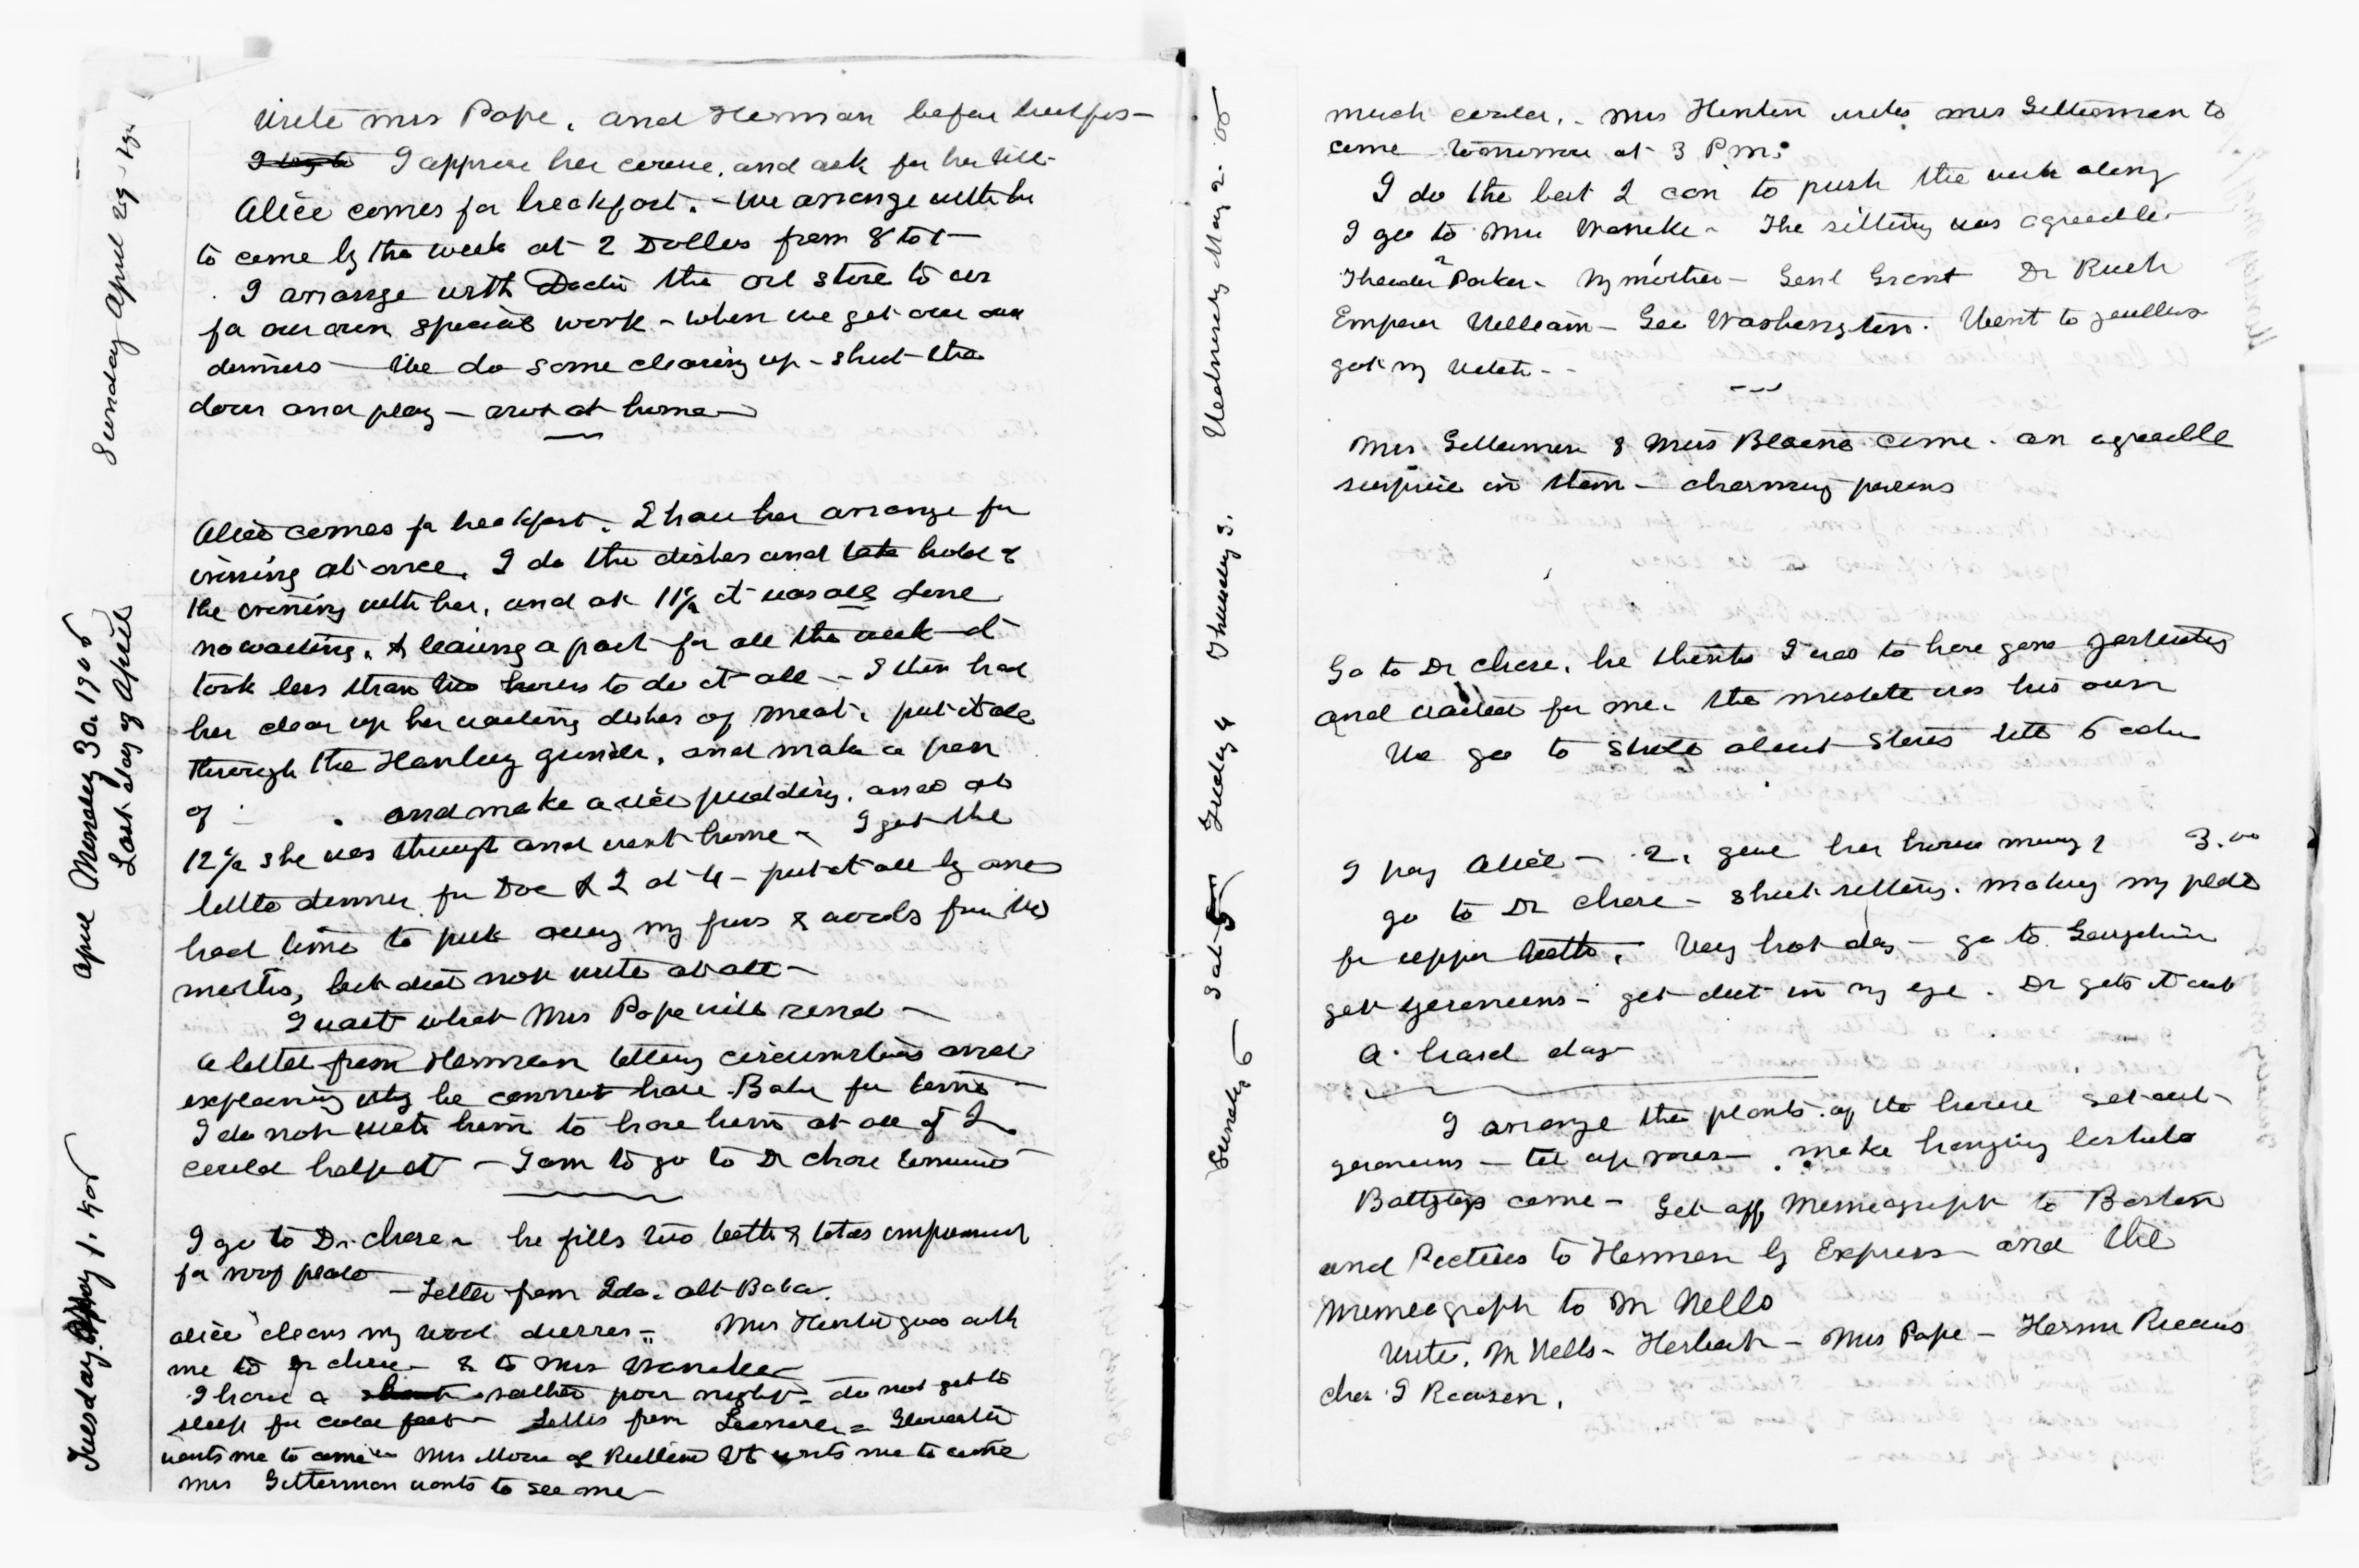 Sunday April 29
Write Mrs Pope, and Herman before breakfast
I approve her course, and ask for her bill
Alice comes for breakfast. - We arrange with her
to come by the week at 2 Dollars from 8 to 1
I arrange with Doctor the oil stove to use
for our own special work - when we get our own
dinners - We do some clearing up - shut the
doors and play - are not at home
April Monday 30. 1906
Last day of April
Alice comes for breakfast. I have her arrange for
ironing at once. I do the dishes and take hold of
the ironing with her, and at 11 ½ it was all done
no waiting, & leaving a part for all the week it
took less than two hours to do it all - I then had
her clear up her waiting dishes of meat, put it all
through the Hanley grinder, and make a pan
of . and make a rice pudding, and at
12 ½ she was through and went home - I get the
little dinner for Doc & I at 4 - put it all by and
had time to put away my furs & woolens from the
moths, but did not write at all -
I wait what Mrs Pope will send -
A letter from Herman telling circumstances and
explaining why he cannot have Baba for terms
I do not wish him to have him at all if I
could help it - I am to go to Dr Chase tomorrow
Tuesday May 1.
I go to Dr. Chase - he fills two teeth & takes impression
for roof plate
- Letter from Ida. abt Baba.
Alice cleans my wool dresses - Mrs Hinton goes with
me to Dr Chase - & to Mrs Warneke
I have a rather poor night - do not get to
sleep for cold feet - Letter from Leonard = Gloucester
wants me to come - Mrs Morse of Rutland Vt wants me to come
Mrs Gitterman wants to see me -
Wednesday May 2.
much cooler. - Mrs Hinton writes Mrs Gitterman to
come tomorrow at 3 P m.
I do the best I can to push the work along
I go to Mrs Warneke - The sitting was agreeable
Theodore Parker - My mother - Genl Grant Dr Rush
Emperor William - Geo Washington. Went to jewellers
got my watch - -
Thursday 3.
Mrs Gitterman & Miss Blaine came - an agreeable
surprise in them - charming persons
Friday 4
Go to Dr Chase, he thinks I was to have gone yesterday
and waited for me. the mistake was his own
We go to State about stores
Sat 5
I pay Alice - 2. gave her house money 3.00
go to Dr Chase - short sitting. making my plate
for upper teeth. Very hot day - go to
get geraniums - get dirt in my eye. Dr gets it out
A hard day
Sunday 6
I arrange the plants of the house set out
geraniums - tie up roses - make hanging baskets
came - Get off Memeograph to Boston
and Pictures to Herman by Express and the
Memeograph to M Wells
Write, M Wells - Herbert - Mrs Pope - Herman Riccius
Chas S Rawson.